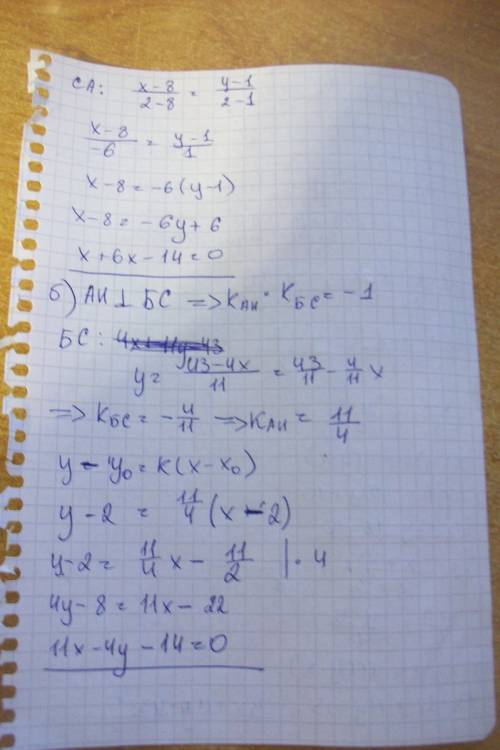 CA: (x-8)/(2-8) = (y-1)/(2-1)
(x-8)/(-6) = (y-1)/1
x-8 = -6(y-1)
x-8 = -6y+6
x+6x-14=0
б) AH ⊥ БС => K_AH · K_БС = -1
БС: 4x+11y-43
y = (43-4x)/11 = 43/11 - 4/11 x
=> K_БС = -4/11 => K_AH = 11/4
y - y₀ = K(x-x₀)
y-2 = 11/4 (x-2)
y-2 = 11/4 x - 11/2 | · 4
4y-8 = 11x-22
11x-4y-14=0